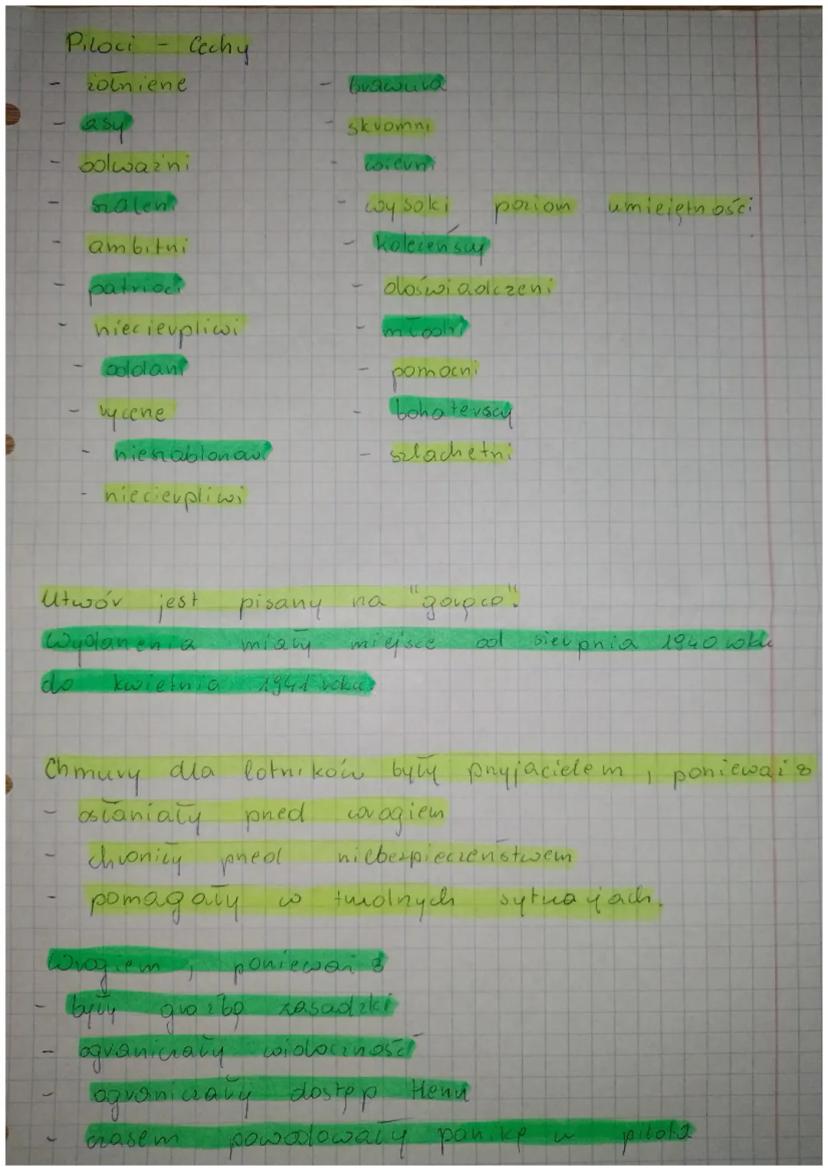 Piloci - Cechy
- żołnierze
- asy
- odważni
- szaleni
- ambitni
- patrioci
- niecierpliwi
- oddani
- rycerze
- nieszablonowi
- niecierpliwi
- brawura
- skromni
- wierni
- wysoki poziom umiejętności
- koleżeńscy
- doświadczeni
- młodzi
- pomocni
- bohaterscy
- szlachetni
Utwór jest pisany na "gorąco".
Wydarzenia miały miejsce od sierpnia 1940 roku
do kwietnia 1941 roku
Chmury dla lotników były przyjacielem, ponieważ:
- osłaniały przed wrogiem
- chroniły przed niebezpieczeństwem
- pomagały w trudnych sytuacjach.
Wrogiem, ponieważ:
- były groźbą zasadzki
- ograniczały widoczność
- ograniczały dostęp tlenu
- czasem powodowały panikę w pilota